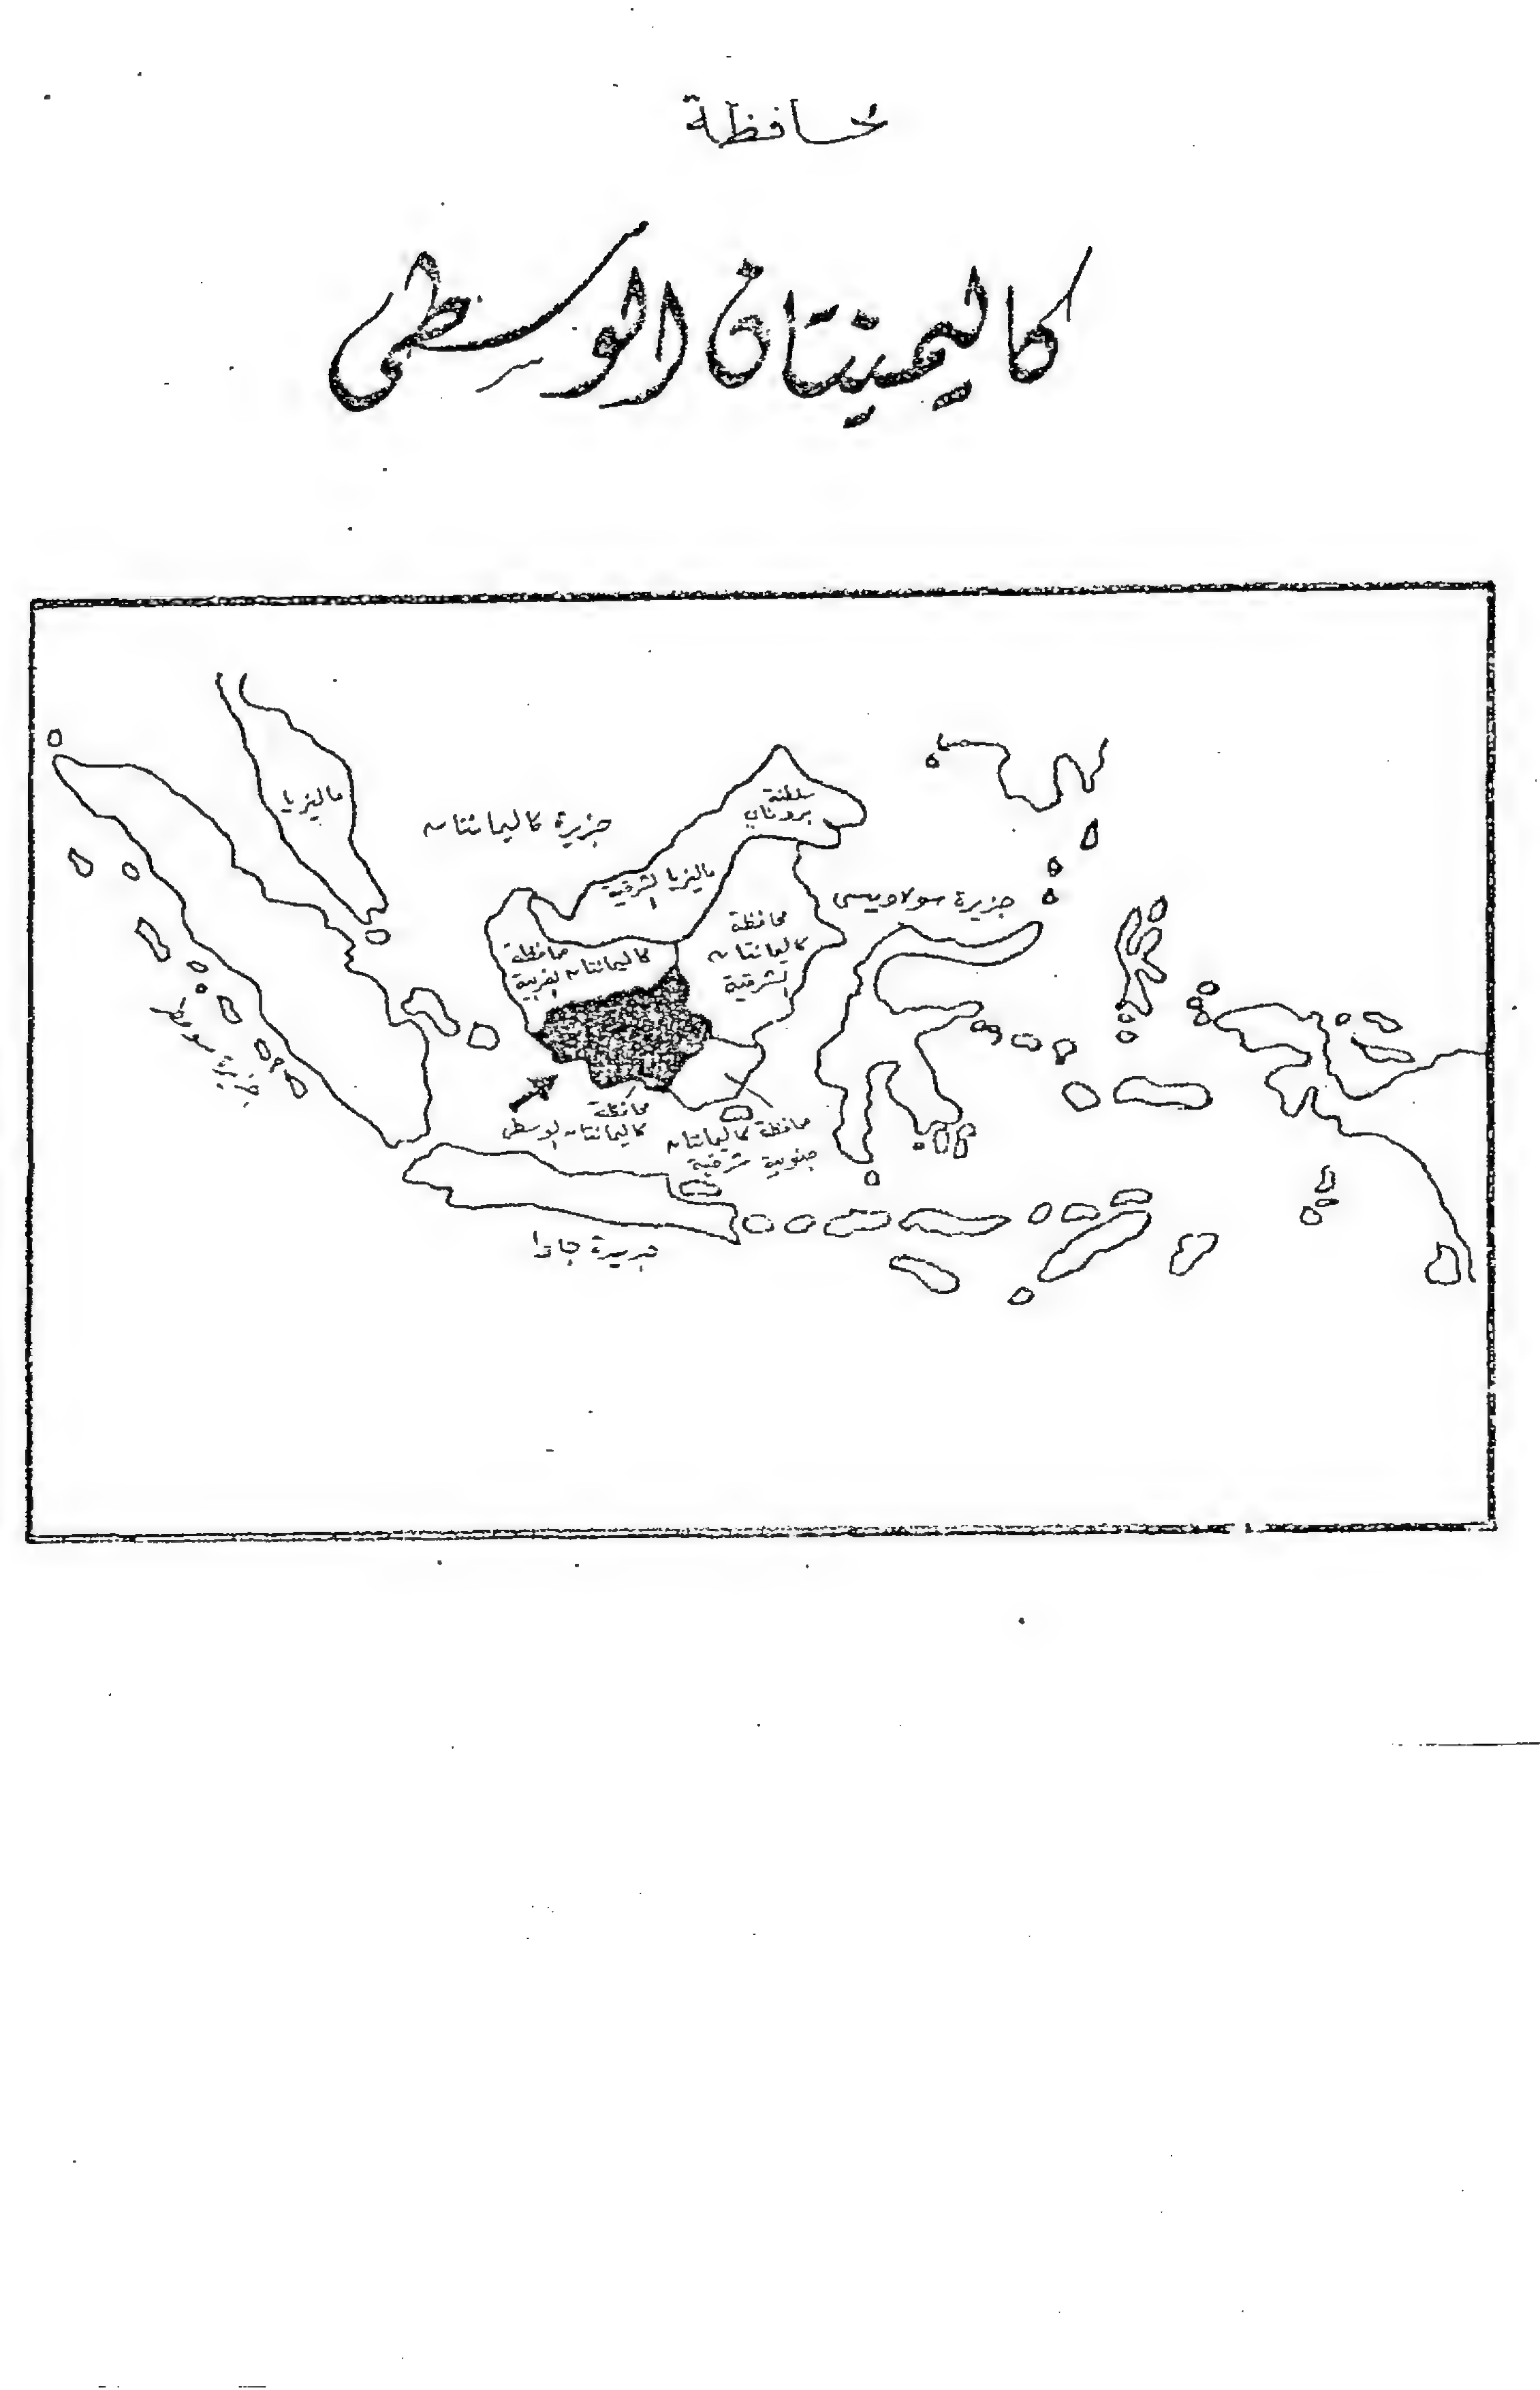 محافظة
كاليمنتان الوسطى
ماليزيا
جزيرة كاليمانتان
سلطنة
بروناي
ماليزيا الشرقية
جزيرة سولاويسى
محافظة
كاليمانتان
الشرقية
محافظة
كاليمانتان الغربية
جزيرة سومطرا
محافظة
كاليمانتان الوسطى
محافظة كاليمانتان
جنوبية شرقية
جزيرة جاوا